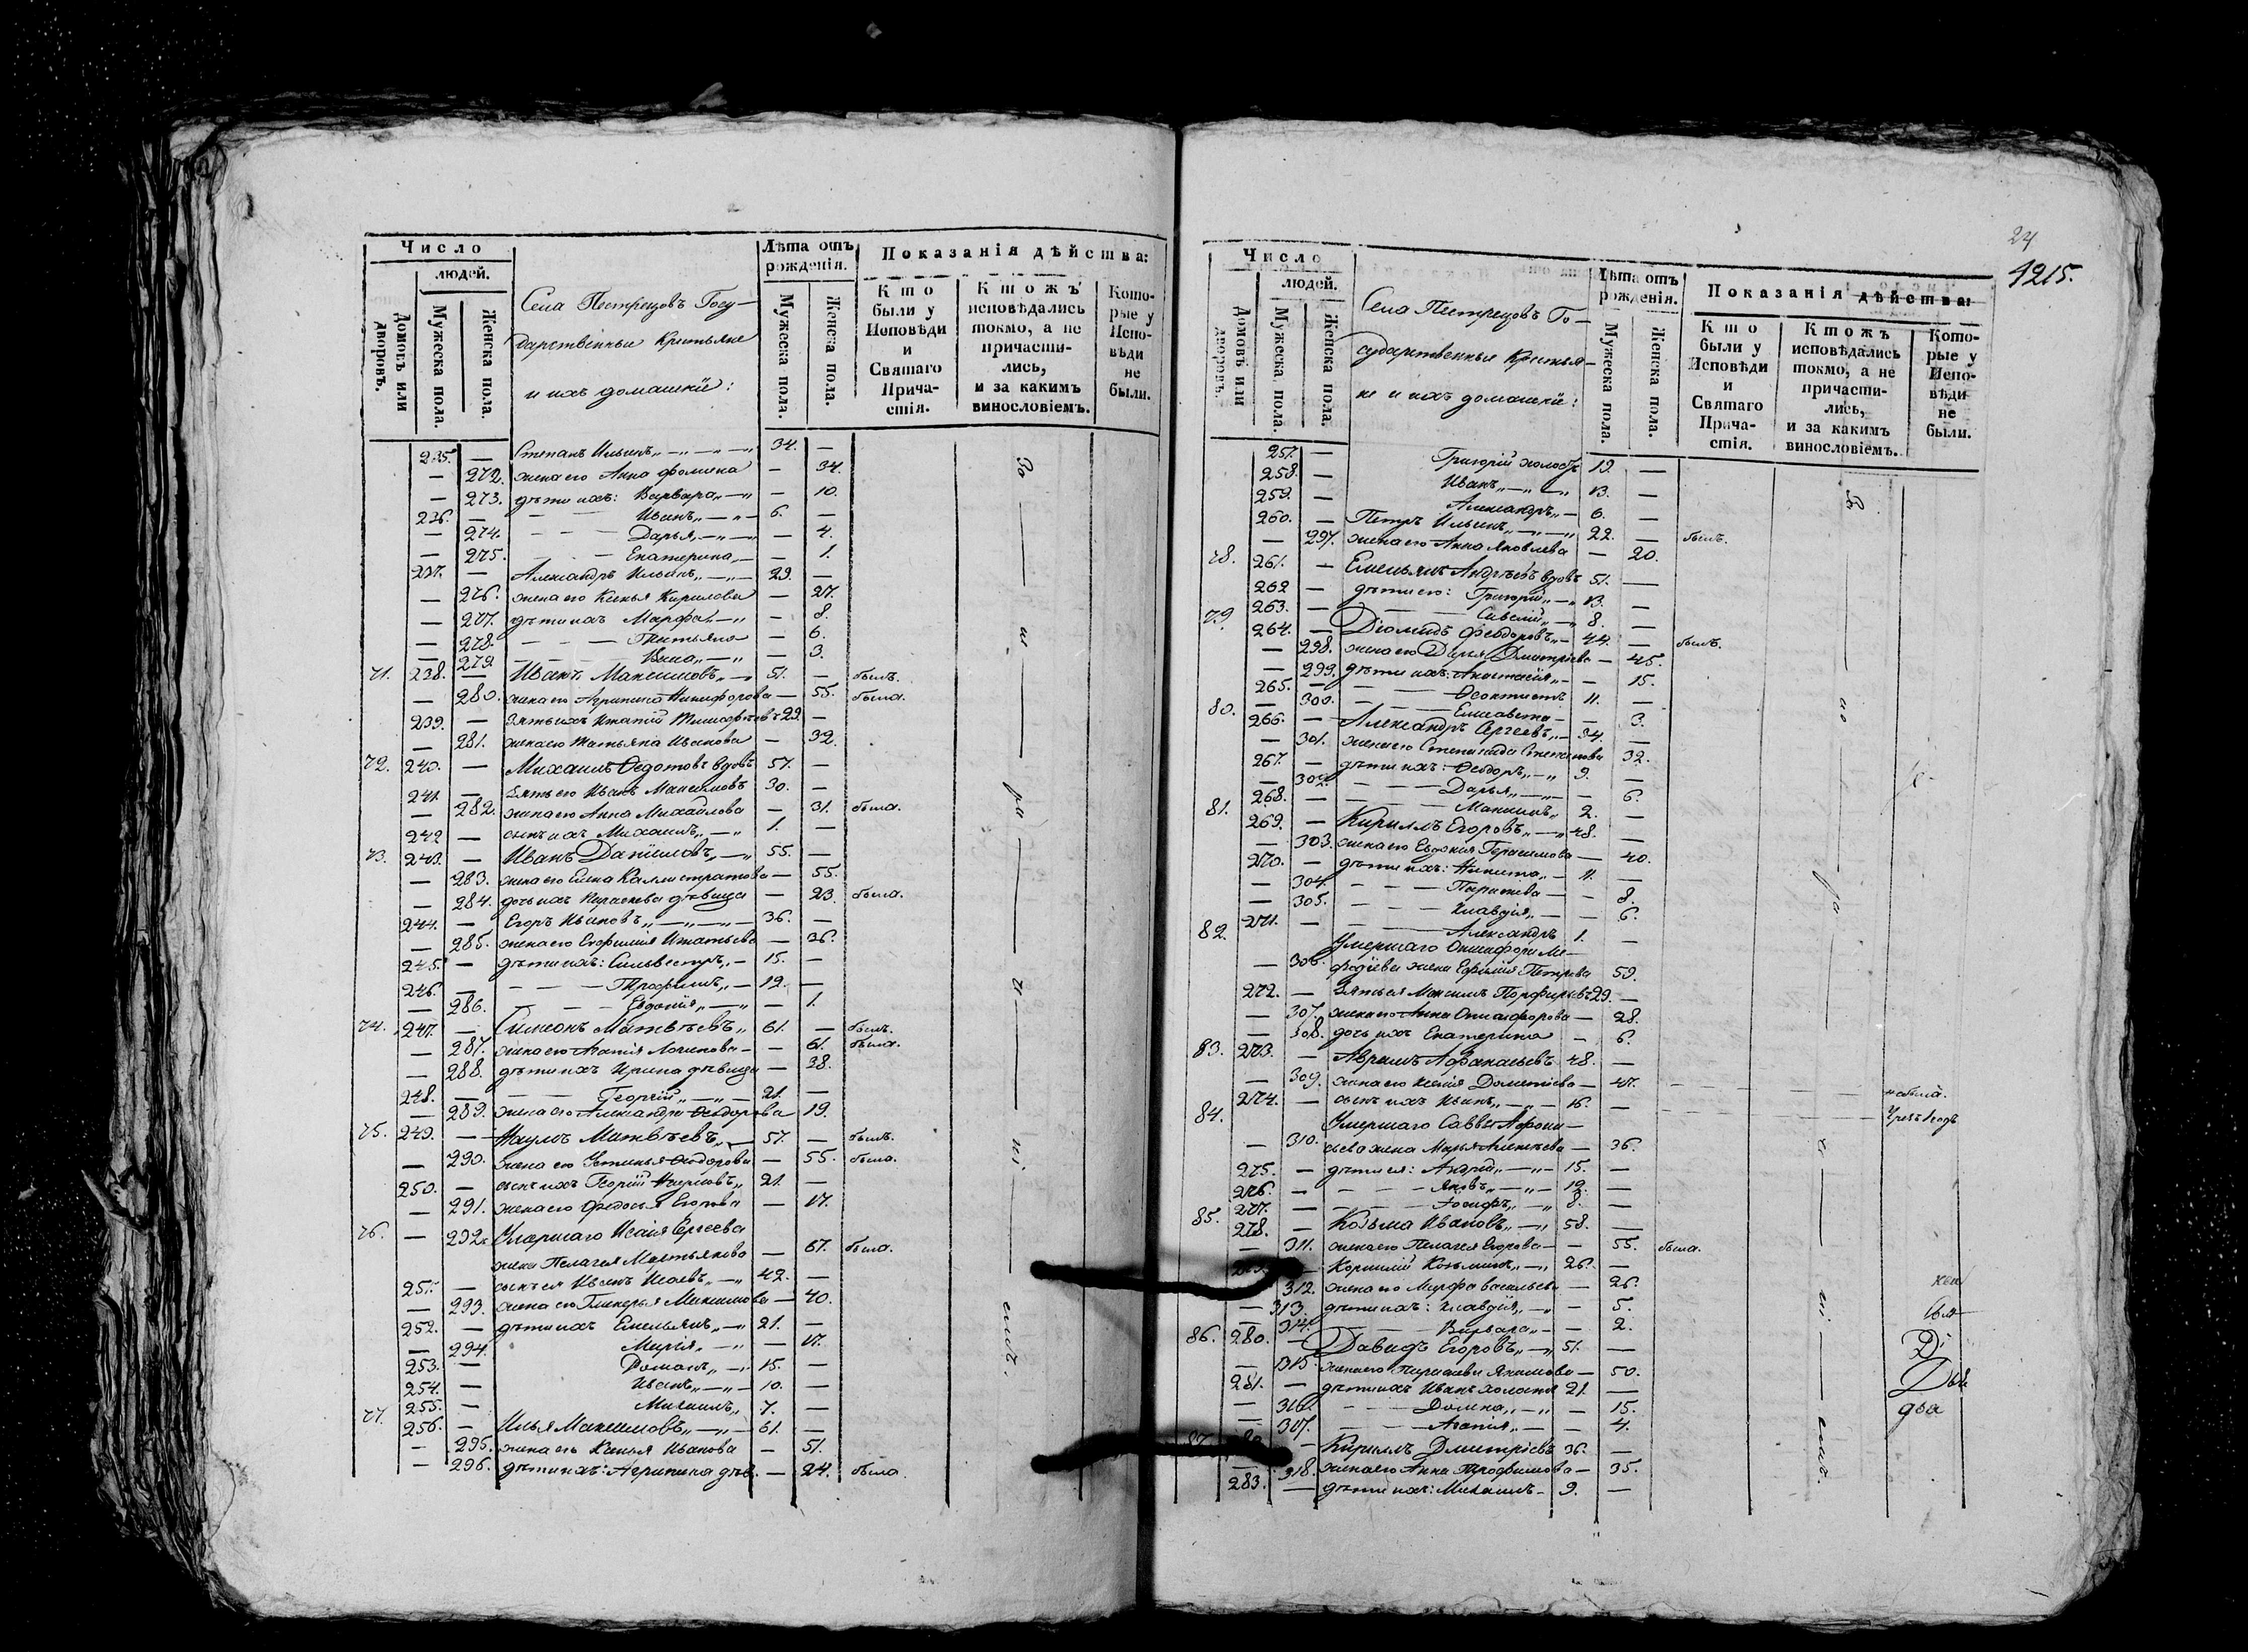 Число
людей.
Домовъ или дворовъ.
Мужеска пола.
Женска пола.
Села Пестрецовъ Госу-
дарственные крестьяне
и ихъ домашніе:
Лѣта отъ рожденія.
Мужеска пола.
Женска пола.
Показанія дѣйства:
Кто были у Исповѣди и Святаго Причастія.
Ктожъ исповѣдались токмо, а не причастились, и за какимъ винословіемъ.
Которые у Исповѣди не были.
235. — Степанъ Ильинъ 34. —
— 272. жена его Анна Фомина — 34.
— 273. дѣти ихъ: Варвара — 10.
236. — Иванъ 6. —
— 274. Дарья — 4.
— 275. Екатерина — 1.
237. — Александръ Ильинъ 29. —
— 276. жена его Ксенья Кирилова — 27.
— 277. дѣти ихъ Марфа — 8.
— 278. Татьяна — 6.
— 279 — 3.
71. 238. — Иванъ Максимовъ 51. — былъ.
— 280. жена его Агрипина Никифорова — 55. была.
239. — Зять ихъ Игнатій 29. —
— 281. жена его Татьяна Иванова — 32.
72. 240. — Михаилъ Ѳедотовъ вдовъ 57. —
241. — Зять его Иванъ Максимовъ 30. —
— 282. жена его Анна Михайлова — 31. была.
242 — сынъ ихъ Михаилъ 1. —
73. 243. — Иванъ Даниловъ 55. —
— 283. жена его Елена Каллистратова — 55.
— 284. дочь ихъ Параскева дѣвица — 23. была.
244. — Егоръ Ивановъ 36. —
— 285. жена его Евфимія Игнатьева — 36.
245. — дѣти ихъ: Сильвестръ 15. —
246. — Трофимъ 12. —
— 286. Евдокія — 1.
74. 247. — Симеонъ Матвѣевъ 61. — былъ.
— 287. жена его Агапія Логинова — 61. была.
— 288. дѣти ихъ Ирина дѣвица — 38.
248. — Георгій 21. —
— 289. жена его Александра Ѳеодорова 19.
75. 249. — Наумъ Матвѣевъ 57. — былъ.
— 290. жена его Устинья Ѳеодорова — 55. была.
250. — сынъ ихъ Георгій Наумовъ 21. —
— 291. жена его Федосья Егорова — 17.
76. — 292. Умершаго Исаія Сергеева
жена Пелагея Мартьянова — 67. была.
251. — сынъ ея Иванъ Исаевъ 42. —
— 293. жена его Гликерья Максимова — 40.
252. — дѣти ихъ Емельянъ 21. —
— 294. Марія — 17.
253. — Романъ 15. —
254. — Иванъ 10. —
255. — Михаилъ 7. —
77. 256. — Илья Максимовъ 61. —
— 295. жена его Ксенья Иванова — 51.
— 296. дѣти ихъ: Агрипина дѣв. — 24. была.
24
1215.
Число
людей.
Домовъ или дворовъ.
Мужеска пола.
Женска пола.
Села Пестрецовъ Го-
сударственные крестья-
не и ихъ домашніе:
Лѣта отъ рожденія.
Мужеска пола.
Женска пола.
Показанія дѣйства:
Кто были у Исповѣди и Святаго Причастія.
Ктожъ исповѣдались токмо, а не причастились, и за какимъ винословіемъ.
Которые у Исповѣди не были.
257. — Григорій холостъ 19. —
258. — Иванъ 13. —
259. — Александръ 6. —
260. — Петръ Ильинъ 22. — былъ.
— 297. жена его Анна Яковлева — 20.
78. 261. — Емельянъ Андреевъ вдовъ 51. —
262 — дѣти его: Григорій 13. —
263. — 8. —
79. 264. — Діомидъ Ѳеодоровъ 44. — былъ.
— 298. жена его Дарья Дмитріева — 45.
— 299. дѣти ихъ: Анастасія — 15.
265. — Ѳеоктистъ 11. —
— 300. Елисавета — 3.
80. 266. — Александръ Сергеевъ 34. —
— 301. жена его Степанида Степанова 32.
267. — дѣти ихъ: Ѳеодоръ 9. —
— 302. Дарья — 6.
268. — Максимъ 2. —
81. 269. — Кирилъ Егоровъ 48. —
— 303. жена его Евдокия Герасимова — 40.
270. — дѣти ихъ: Никита 11. —
— 304. — 8.
— 305. Клавдія — 6.
271. — Александръ 1. —
82. Умершаго Онисифора Ме-
— 306. фодіева жена Ефимія Петрова 59.
272. — Зять ея Максимъ Порфирьевъ 29. —
— 307. жена его Анна Онисифорова — 28.
— 308. дочь ихъ Екатерина — 6.
83. 273. — Аврамъ Афанасьевъ 48. —
— 309. жена его Ксенія — 47. не была.
274. — сынъ ихъ Иванъ 16. —
84. Умершаго Саввы Афона-
— 310. сьева жена Марья Алексѣева — 36.
275. — дѣти ея: Андрей 15. —
276. — Яковъ 12. —
277. — Іосифъ 8. —
85. 278. — Козьма Ивановъ 58. —
— 311. жена его Пелагея Егорова — 55. была.
— Корнилій Козьминъ 26. —
312. жена его Марфа Васильева — 26.
— 313. дѣти ихъ: Клавдія — 5.
314. Варвара — 2.
86. 280. — Давидъ Егоровъ 51. —
— 315. жена его Параскева Якимова — 50.
281. — дѣти ихъ Иванъ холостъ 21. —
— 316. Домна — 15.
— 317. Агапія — 4.
87. — Кирилъ Дмитріевъ 36. —
— 318. жена его Анна Трофимова — 35.
283. — дѣти ихъ: Михаилъ 9. —
два